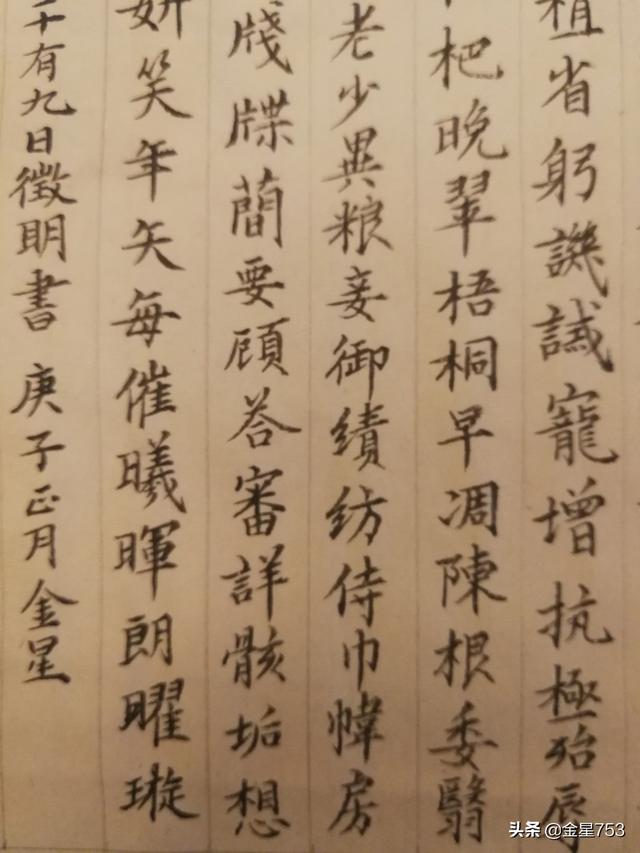 植省躬譏誡寵增抗極殆辱
杷晚翠梧桐早凋陳根委翳
老少異粮妾御績紡侍巾幃房
牋牒蕳要顧荅審詳骸垢想
妍笑年矢每催曦暉朗曜璇
十有九日徵明書 庚子正月金星
头条 @金星753